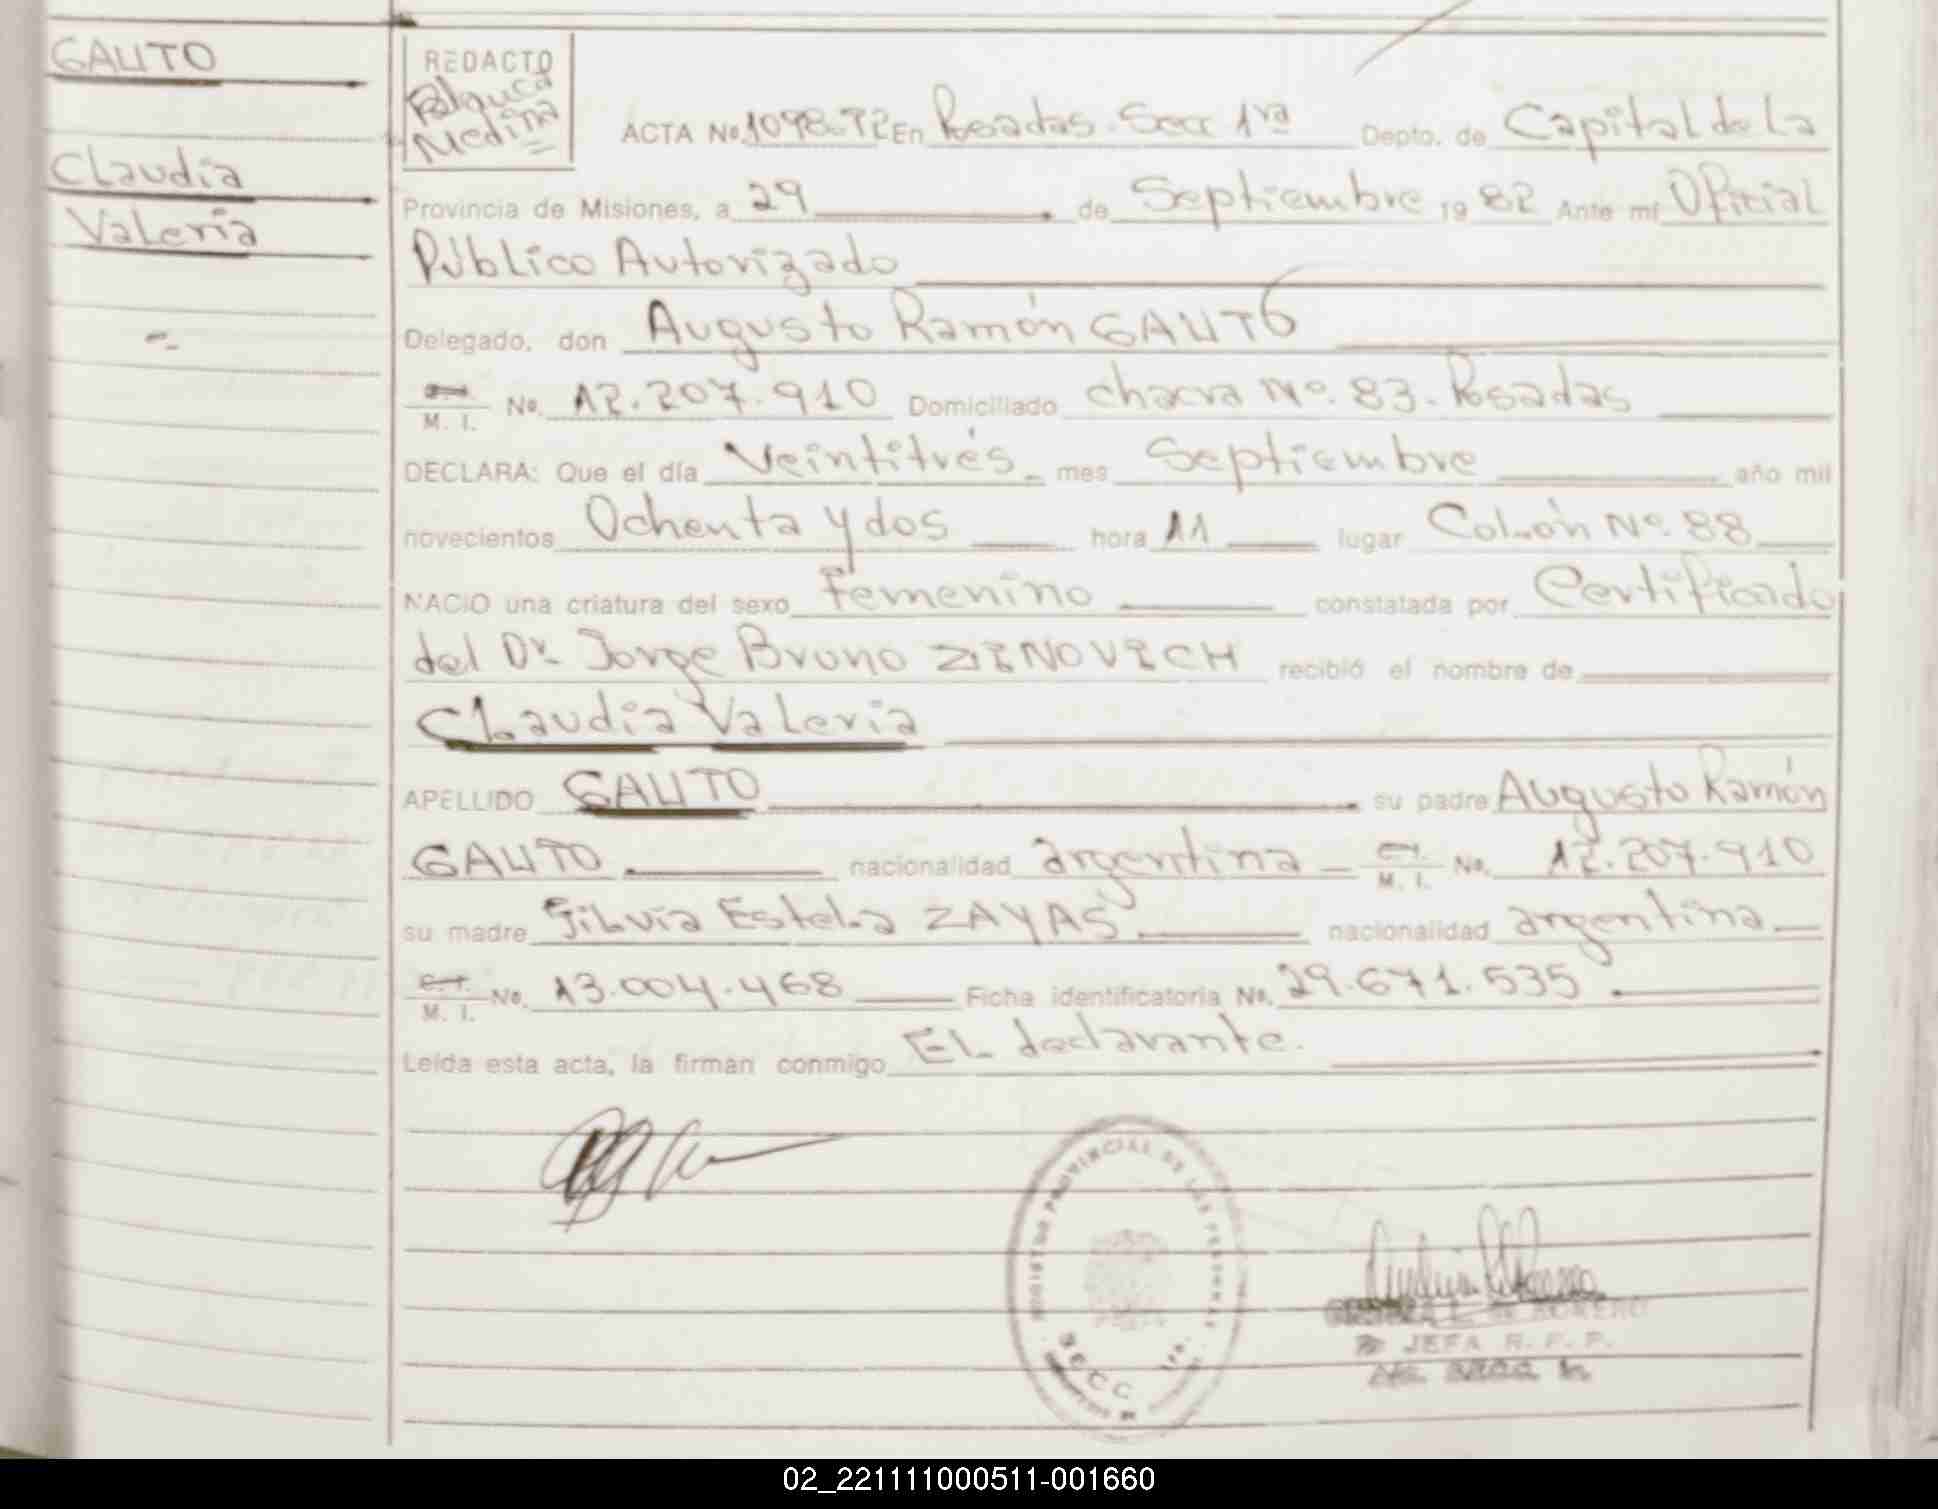 GAUTO
Claudia
Valeria
REDACTO
Medina
ACTA No. 1098. T2 En Posadas. Secc 1ra Depto. de Capital de la
Provincia de Misiones, a 29 de Septiembre 19 82 Ante mi Oficial
Público Autorizado
Delegado, don Augusto Ramón GAUTO
M. I. No. 12.207.910 Domiciliado chacra Nº. 83. Posadas
DECLARA: Que el día Veintitrés mes Septiembre año mil
novecientos Ochenta y dos hora 11 lugar Colón Nº. 88
NACIO una criatura del sexo Femenino constatada por Certificado
del Dr. Jorge Bruno ZINOVICH recibió el nombre de
Claudia Valeria
APELLIDO GAUTO su padre Augusto Ramón
GAUTO nacionalidad argentina C.I. M. I. No. 12.207.910
su madre Silvia Estela ZAYAS nacionalidad argentina
C.I. M. I. No. 13.004.468 Ficha identificatoria No. 29.671.535
Leída esta acta, la firman conmigo El declarante.
REGISTRO PROVINCIAL DE LAS PERSONAS
SECC. 1ra.
JEFA R. P. P.
02_221111000511-001660